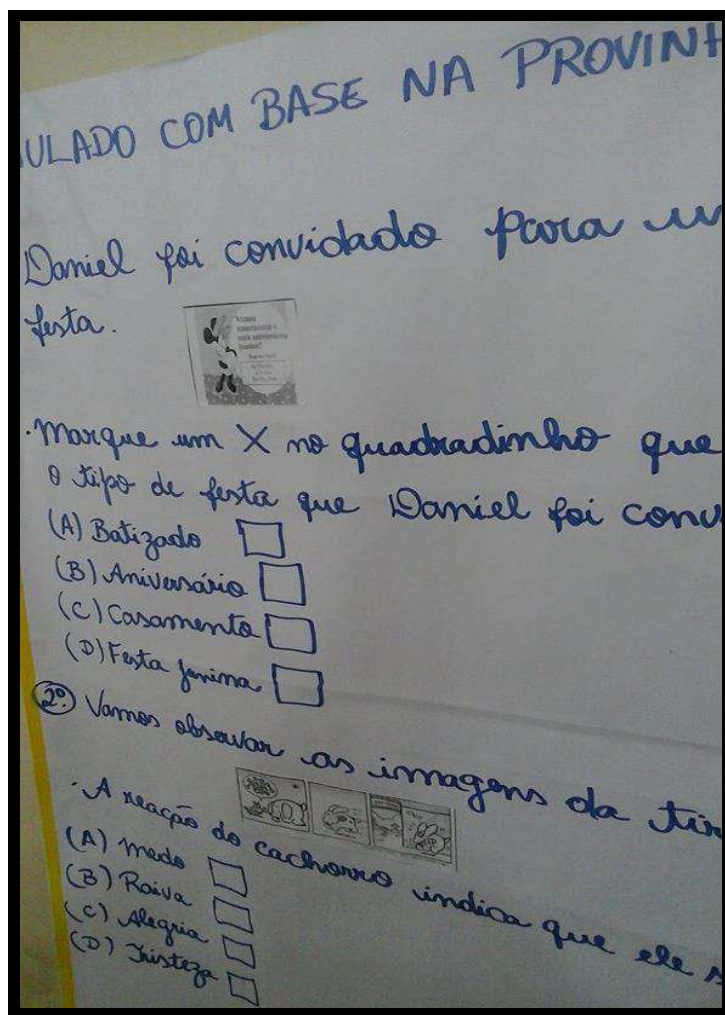 ULADO COM BASE NA PROVINH
Daniel foi convidado para um
festa.
• Marque um X no quadradinho que
o tipo de festa que Daniel foi conv
(A) Batizado
(B) Aniversário
(C) Casamento
(D) Festa junina
2º) Vamos observar as imagens da tir
• A reação do cachorro indica que ele s
(A) Medo
(B) Raiva
(C) Alegria
(D) Tristeza